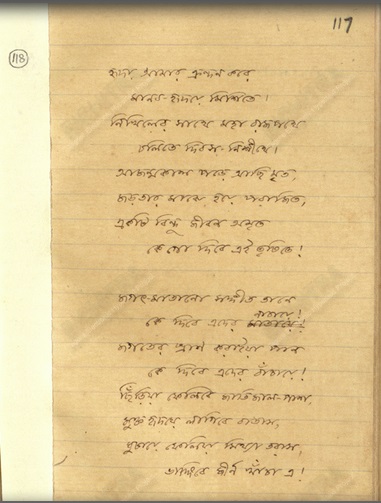 117
118
হৃদয় আমার ক্রন্দন করে
মানব-হৃদয়ে মিশিতে!
নিখিলের সাথে মহা রাজপথে
চলিতে দিবস-নিশীথে!
আজন্মকাল পড়ে আছি মৃত,
জড়তার মাঝে হয়ে পরাজিত,
একটি বিন্দু জীবন অমৃত
কে গো দিবে এই তৃষিতে!
জগৎ-মাতানো সঙ্গীত তানে
কে দিবে এদের নাচায়ে!
জগতের প্রাণ করাইয়া পান
কে দিবে এদের বাঁচায়ে!
ছিঁড়িয়া ফেলিবে জাতিজাল-পাশ,
মুক্ত হৃদয়ে লাগিবে বাতাস,
ঘুচায়ে ফেলিয়া মিথ্যা তরাস,
ভাঙিবে জীর্ণ খাঁচা এ!